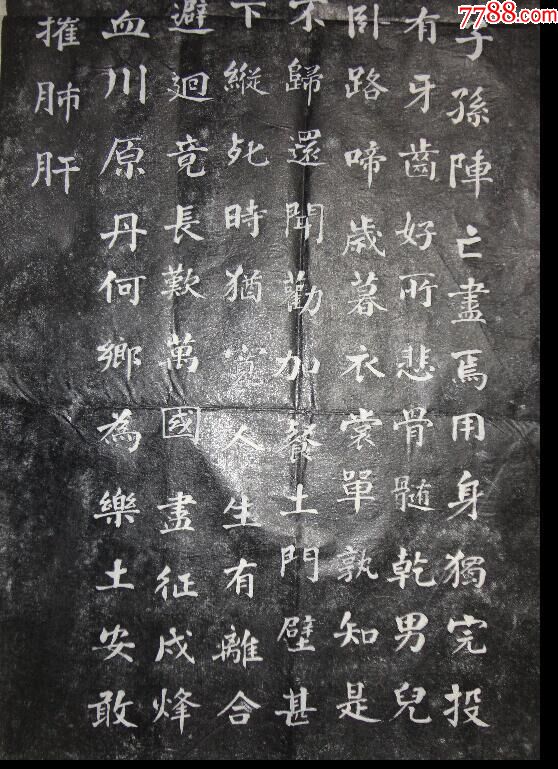 7788.com
子孫陣亡盡焉用身獨完投
有牙齒好所悲骨髓乾男兒
卧路啼歲暮衣裳單孰知是
不歸還聞勸加餐土門壁甚
下縱死時猶寬人生有離合
避迴竟長歎萬國盡征戍烽
血川原丹何鄉為樂土安敢
摧肺肝